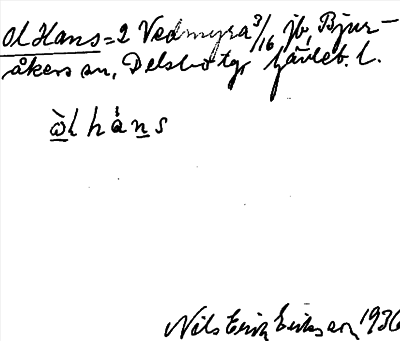 Ol Hans = 2 Vedmyra 3/16 jb, Bjur-
åkers sn, Delsbo tg, Gävleb. l.
òl hȧns
Nils Erik Eriksson 1936